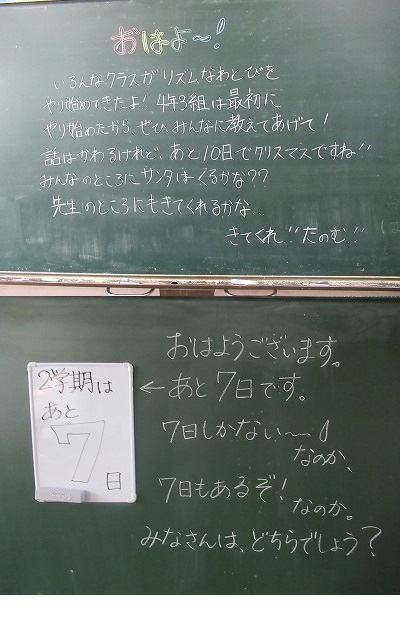 おはよ〜!
いろんなクラスがリズムなわとびを
やり始めてきたよ! 4年3組は最初に
やり始めたから、ぜひ、みんなに教えてあげて!
話はかわるけれど、あと10日でクリスマスですね!!
みんなのところにサンタはくるかな??
先生のところにもきてくれるかな...
きてくれ!!たのむ!!
おはようございます。
←あと7日です。
7日しかない〜!
なのか、
7日もあるぞ!
なのか。
みなさんは、どちらでしょう?
2学期は
あと
7
日